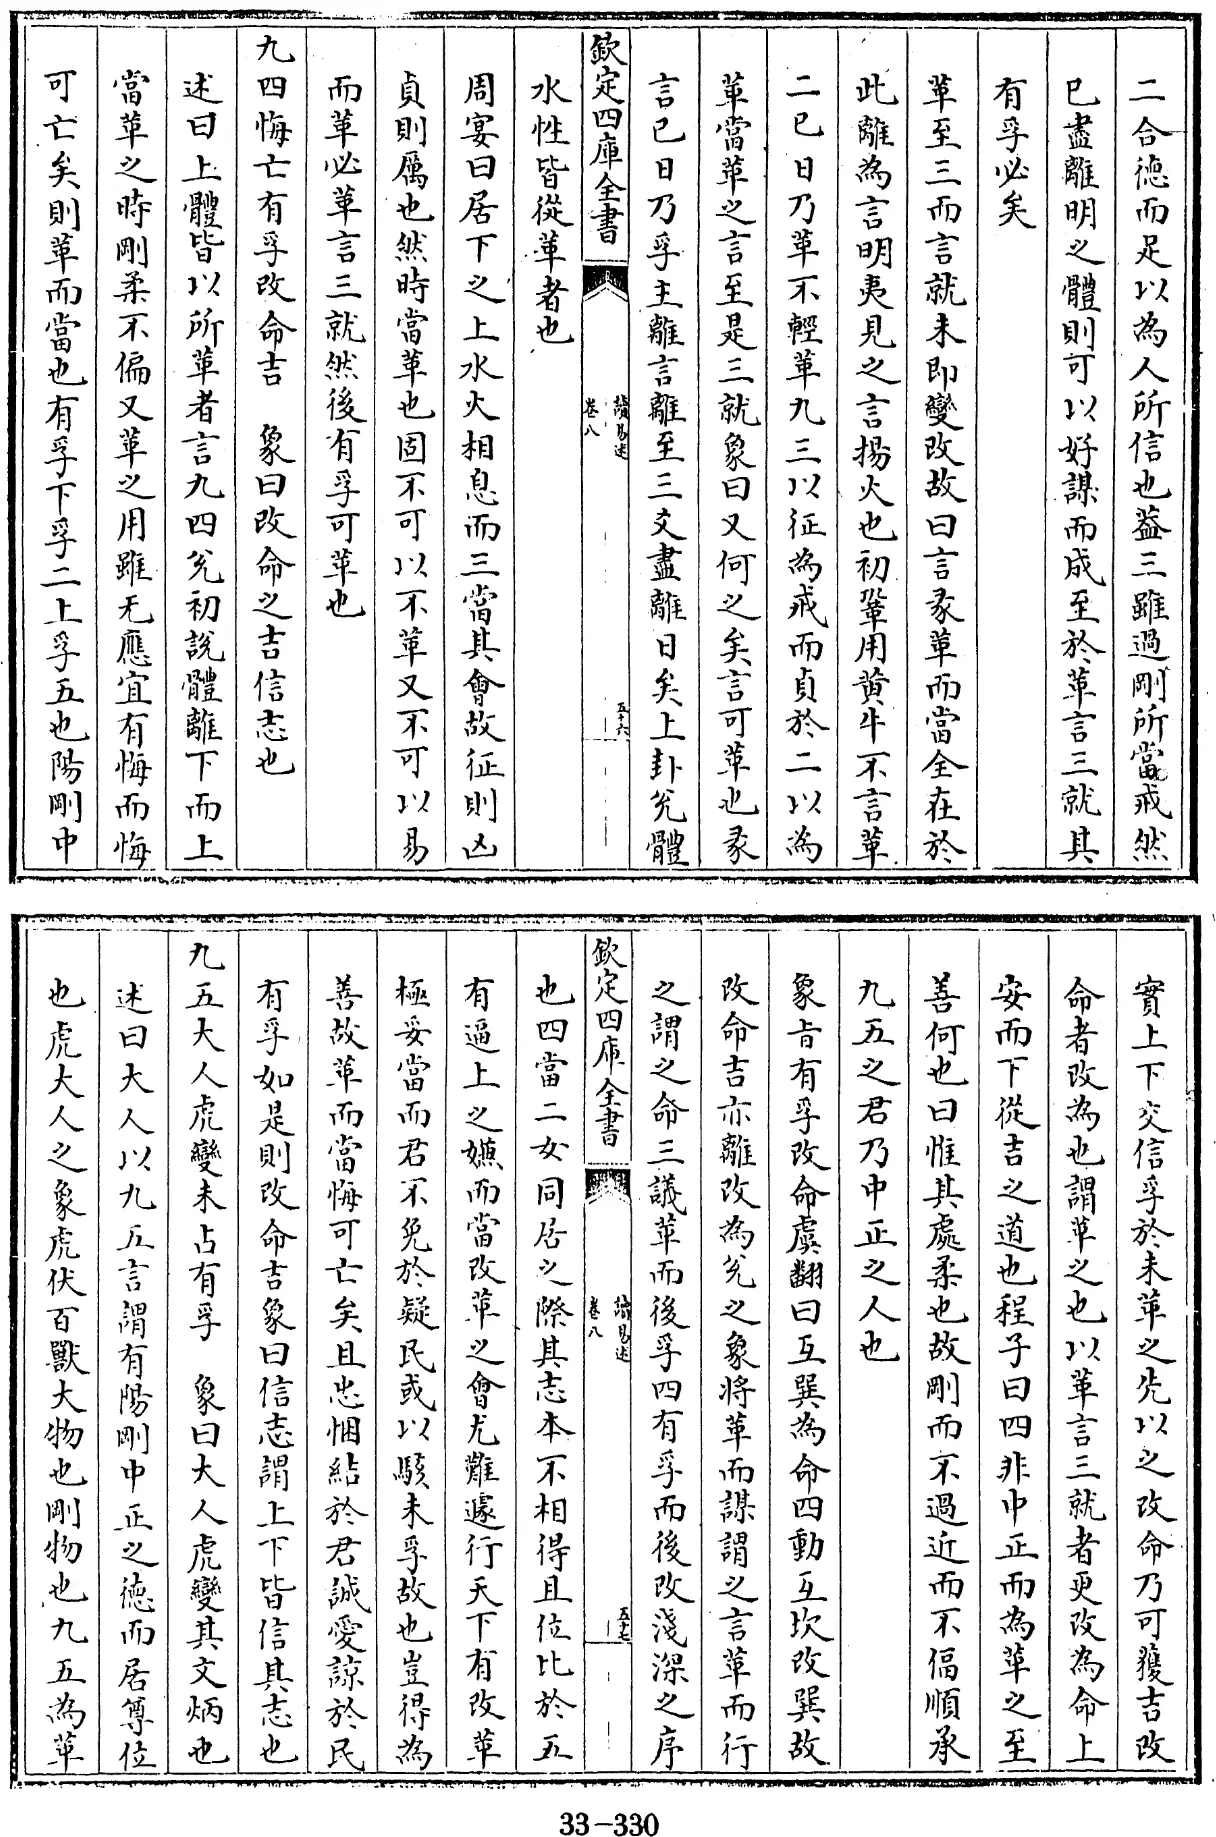 二合徳而足以為人所信也葢三雖過剛所當戒然
已盡離明之體則可以好謀而成至於革言三就其
有孚必矣
革至三而言就未即變改故曰言彖革而當全在於
此離為言明夷見之言揚火也初鞏用黄牛不言革
二已日乃革不輕革九三以征為戒而貞於二以為
革當革之言至是三就象曰又何之矣言可革也彖
言已日乃孚主離言離至三爻盡離日矣上卦兊體
欽定四庫全書
讀易述
卷八
五十六
水性皆從革者也
周宴曰居下之上水火相息而三當其會故征則凶
貞則厲也然時當革也固不可以不革又不可以易
而革必革言三就然後有孚可革也
九四悔亡有孚改命吉 象曰改命之吉信志也
述曰上體皆以所革者言九四兊初説體離下而上
當革之時剛柔不偏又革之用雖无應宜有悔而悔
可亡矣則革而當也有孚下孚二上孚五也陽剛中
實上下交信孚於未革之先以之改命乃可獲吉改
命者改為也謂革之也以革言三就者更改為命上
安而下從吉之道也程子曰四非中正而為革之至
善何也曰惟其處柔也故剛而不過近而不偪順承
九五之君乃中正之人也
彖㫖有孚改命虞翻曰互巽為命四動互坎改巽故
改命吉亦離改為兊之象將革而謀謂之言革而行
之謂之命三議革而後孚四有孚而後改淺深之序
欽定四庫全書
讀易述
卷八
五十七
也四當二女同居之際其志本不相得且位比於五
有逼上之嫌而當改革之會尤難遽行天下有改革
極妥當而君不免於疑民或以駭未孚故也豈得為
善故革而當悔可亡矣且忠悃結於君誠愛諒於民
有孚如是則改命吉象曰信志謂上下皆信其志也
九五大人虎變未占有孚 象曰大人虎變其文炳也
述曰大人以九五言謂有陽剛中正之徳而居尊位
也虎大人之象虎伏百獸大物也剛物也九五為革
33-330